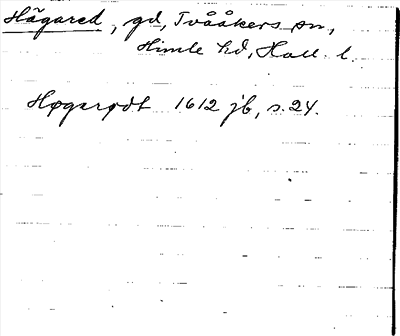 Hågared, gd, Tvååkers sn,
Himle hd, Hall. l.
Høgerødt 1612 jb, s. 24.